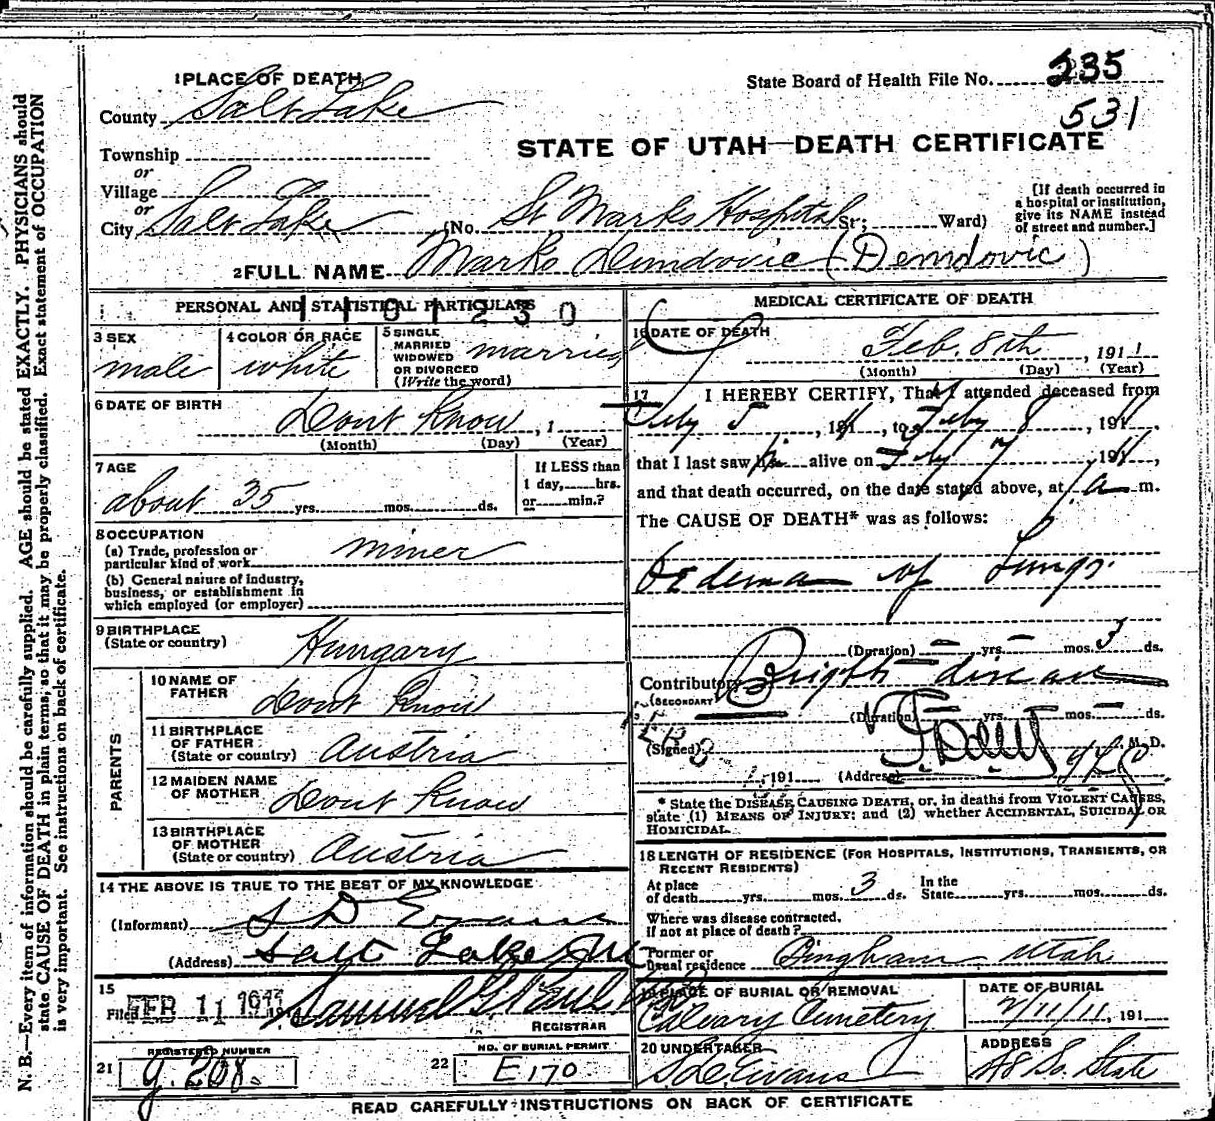 1 PLACE OF DEATH
State Board of Health File No. 235
531
County Salt Lake
STATE OF UTAH—DEATH CERTIFICATE
Township
or
Village Salt Lake
or
City Salt Lake (No. St Marks Hospital St; Ward)
[If death occurred in
a hospital or institution,
give its NAME instead
of street and number.]
2 FULL NAME Marks Dundovic (Demdovic)
PERSONAL AND STATISTICAL PARTICULARS
1101230
3 SEX male
4 COLOR OR RACE white
5 SINGLE
MARRIED
WIDOWED
OR DIVORCED
(Write the word) married
6 DATE OF BIRTH Dont Know, 1
(Month) (Day) (Year)
7 AGE about 35 yrs. mos. ds.
If LESS than
1 day, hrs.
or min.?
8 OCCUPATION
(a) Trade, profession or
particular kind of work miner
(b) General nature of industry,
business, or establishment in
which employed (or employer)
9 BIRTHPLACE
(State or country) Hungary
PARENTS
10 NAME OF
FATHER Dont Know
11 BIRTHPLACE
OF FATHER
(State or country) Austria
12 MAIDEN NAME
OF MOTHER Dont Know
13 BIRTHPLACE
OF MOTHER
(State or country) Austria
14 THE ABOVE IS TRUE TO THE BEST OF MY KNOWLEDGE
(Informant) S D Evans
(Address) Salt Lake
15
Filed FEB 11 Samuel G. Paul
REGISTRAR
21 REGISTERED NUMBER g.208.
22 NO. OF BURIAL PERMIT E170
MEDICAL CERTIFICATE OF DEATH
16 DATE OF DEATH
Feb. 8th, 1911
(Month) (Day) (Year)
17 I HEREBY CERTIFY, That I attended deceased from
Feby 5, 1911, to Feby 8, 1911,
that I last saw him alive on Feby 7, 1911,
and that death occurred, on the date stated above, at 1 a m.
The CAUSE OF DEATH* was as follows:
Oedema of Lungs.
(Duration) — yrs. — mos. 3 ds.
Contributory Brights disease
(SECONDARY)
(Duration) — yrs. — mos. — ds.
(Signed) M. D.
, 191 (Address)
* State the DISEASE CAUSING DEATH, or, in deaths from VIOLENT CAUSES,
state (1) MEANS OF INJURY; and (2) whether ACCIDENTAL, SUICIDAL OR
HOMICIDAL.
18 LENGTH OF RESIDENCE (FOR HOSPITALS, INSTITUTIONS, TRANSIENTS, OR
RECENT RESIDENTS)
At place
of death yrs. mos. 3 ds. In the
State yrs. mos. ds.
Where was disease contracted,
if not at place of death?
Former or
usual residence Bingham Utah
19 PLACE OF BURIAL OR REMOVAL
Calvary Cemetery
DATE OF BURIAL
2/11/11, 191
20 UNDERTAKER
S.D. Evans
ADDRESS
48 So. State
READ CAREFULLY INSTRUCTIONS ON BACK OF CERTIFICATE
N. B.—Every item of information should be carefully supplied. AGE should be stated EXACTLY. PHYSICIANS should
state CAUSE OF DEATH in plain terms, so that it may be properly classified. Exact statement of OCCUPATION
is very important. See instructions on back of certificate.